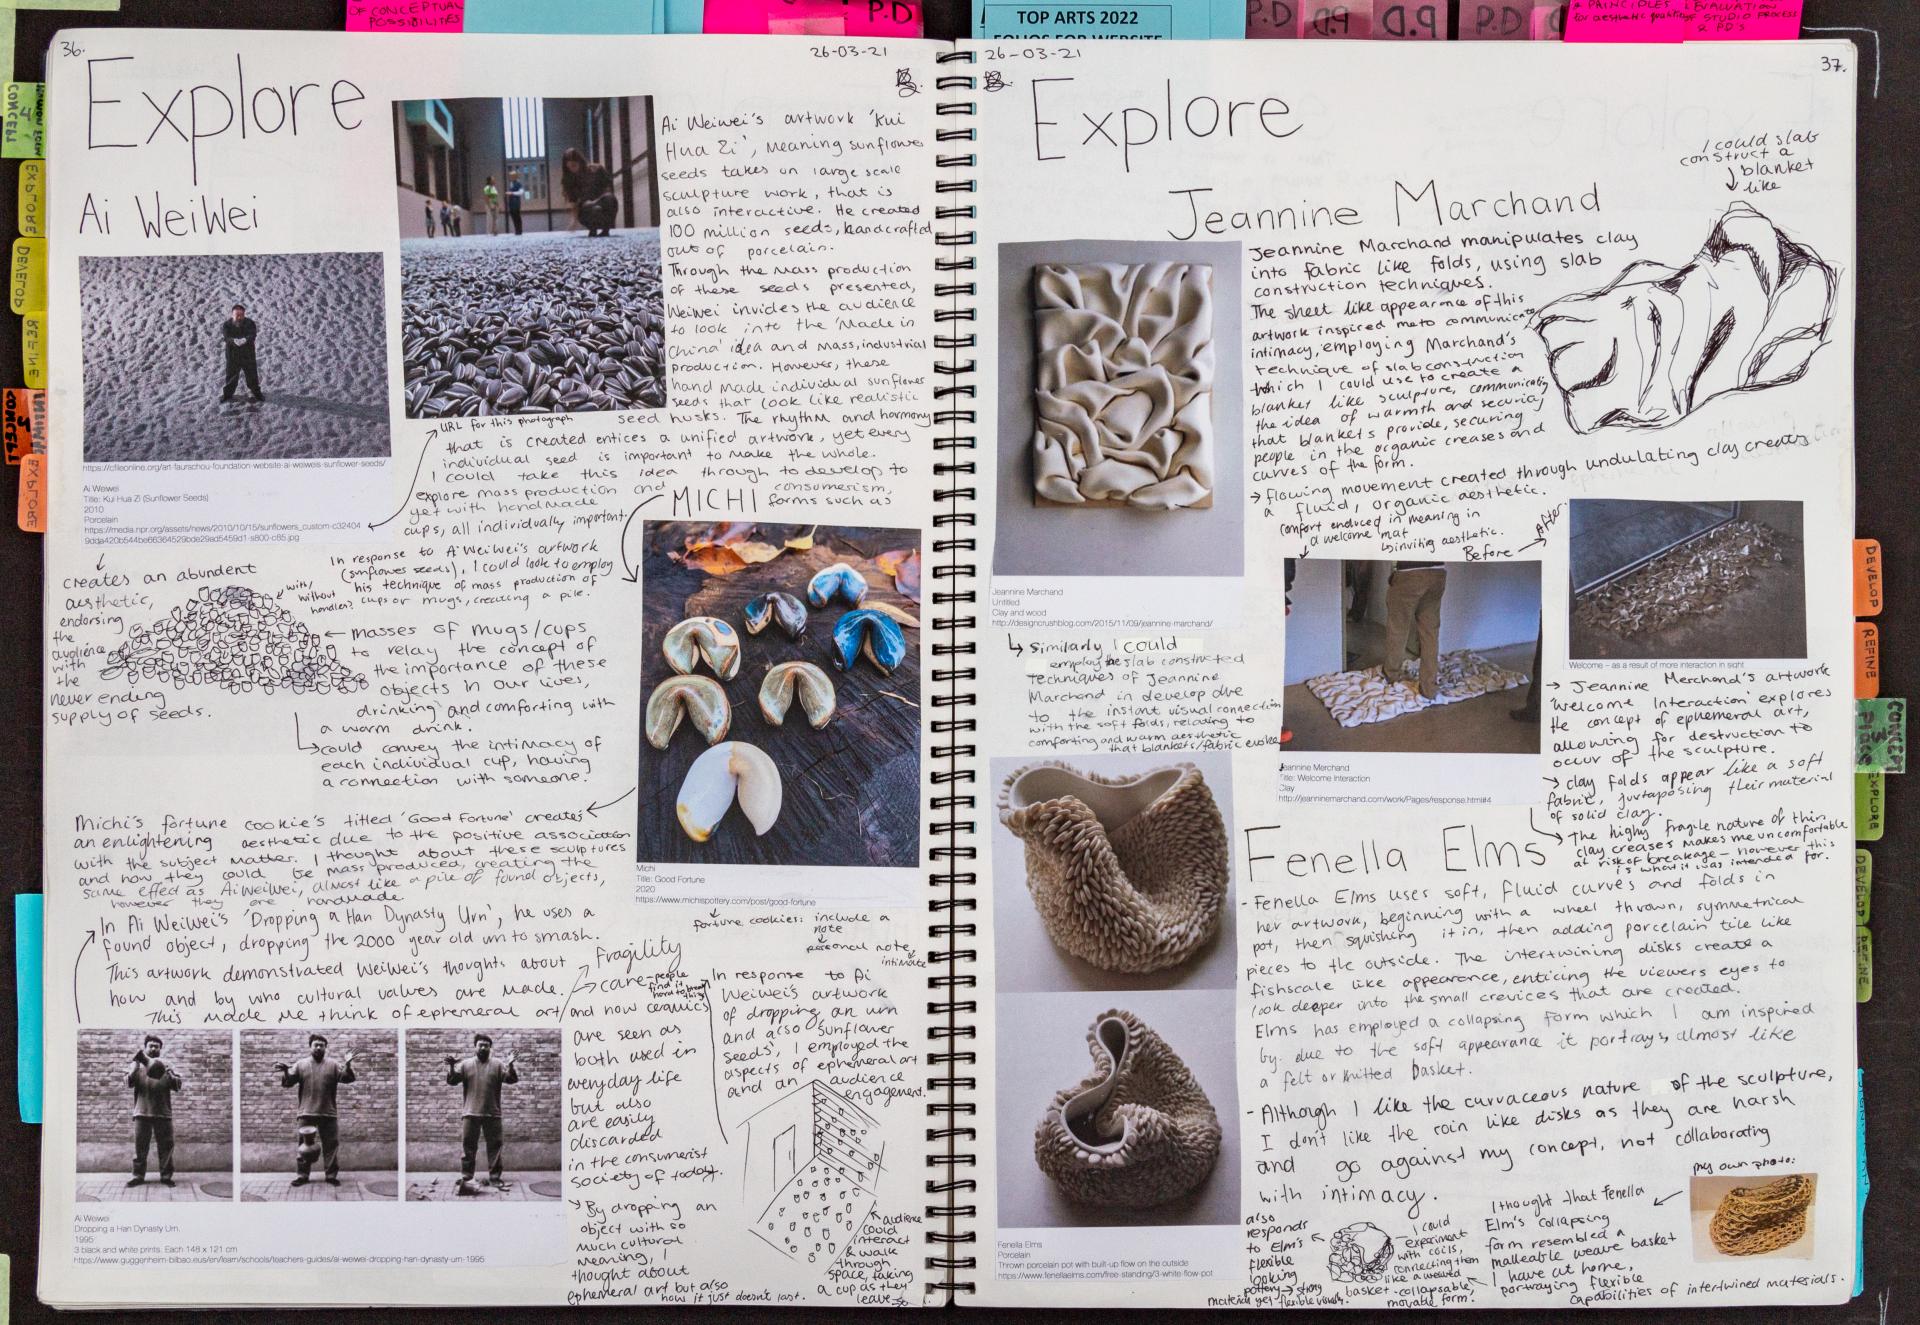 OF CONCEPTUAL
POSSIBILITIES
P.D
TOP ARTS 2022
FOLIOS FOR WEBSITE
P.D
P.D
P.D
P.D
& PRINCIPLES
for aesthetic qualities
EVALUATION
OF STUDIO PROCESS
& PD's
CONCEPT
EXPLORE
DEVELOP
REFINE
CONCEPT
EXPLORE
36.
26-03-21
Explore
Ai WeiWei
https://cfileonline.org/art-faurschou-foundation-website-ai-weiweis-sunflower-seeds/
Ai Weiwei
Title: Kui Hua Zi (Sunflower Seeds)
2010
Porcelain
https://media.npr.org/assets/news/2010/10/15/sunflowers_custom-c32404
9dda420b544be66364529bde29ad5459d1-s800-c85.jpg
Ai Weiwei's artwork 'Kui
Hua Zi', meaning sunflower
seeds takes on large scale
sculpture work, that is
also interactive. He created
100 million seeds, handcrafted
out of porcelain.
Through the mass production
of these seeds presented,
Weiwei invides the audience
to look into the 'Made in
China' idea and mass, industrial
production. However, these
hand made individual sunflower
seeds that look like realistic
seed husks. The rhythm and harmony
that is created entices a unified artwork, yet every
individual seed is important to make the whole.
I could take this idea through to develop to
explore mass production and consumerism,
yet with handmade forms such as
cups, all individually important.
URL for this photograph
MICHI
creates an abundent
aesthetic,
endorsing
the
audience
with
the
never ending
supply of seeds.
In response to Ai WeiWei's artwork
(sunflower seeds), I could look to employ
his technique of mass production of
cups or mugs, creating a pile.
with/
without
handles?
masses of mugs/cups
to relay the concept of
the importance of these
objects in our lives,
drinking and comforting with
a warm drink.
could convey the intimacy of
each individual cup, having
a connection with someone.
Michi's fortune cookie's titled 'Good Fortune' creates
an enlightening aesthetic due to the positive association
with the subject matter. I thought about these sculptures
and how they could be mass produced, creating the
same effect as AiWeiWei, almost like a pile of found objects,
however they are handmade.
Michi
Title: Good Fortune
2020
https://www.michispottery.com/post/good-fortune
fortune cookies: include a
note
personal note,
intimate
In Ai Weiwei's 'Dropping a Han Dynasty Urn', he uses a
found object, dropping the 2000 year old urn to smash.
This artwork demonstrated WeiWei's thoughts about
how and by who cultural values are made.
This made me think of ephemeral art/and now ceramics
are seen as
both used in
everyday life
but also
are easily
discarded
in the consumerist
society of today.
Fragility
care-people
find it
hard to break
things
By dropping an
object with so
much cultural
meaning, I
thought about
ephemeral art but also
how it just doesn't last.
In response to Ai
Weiwei's artwork
of dropping an urn
and also 'Sunflower
seeds', I employed the
aspects of ephemeral art
and an audience
engagement.
audience
could
interact
& walk
through
space, taking
a cup as they
leave
Ai Weiwei
Dropping a Han Dynasty Urn.
1995
3 black and white prints. Each 148 x 121 cm
https://www.guggenheim-bilbao.eus/en/learn/schools/teachers-guides/ai-weiwei-dropping-han-dynasty-urn-1995
26-03-21
37.
Explore
Jeannine Marchand
I could slab
construct a
blanket
like
Jeannine Marchand manipulates clay
into fabric like folds, using slab
construction techniques.
The sheet like appearance of this
artwork inspired me to communicate
intimacy, employing Marchand's
technique of slab construction
which I could use to create a
blanket like sculpture, communicating
the idea of warmth and security
that blankets provide, securing
people in the organic creases and
curves of the form.
flowing movement created through undulating clay creates
a fluid, organic aesthetic.
comfort enduced in meaning in
a welcome mat
inviting aesthetic.
Before
After
Jeannine Marchand
Untitled
Clay and wood
http://designcrushblog.com/2015/11/09/jeannine-marchand/
Similarly I could
employ the slab constructed
techniques of Jeannine
Marchand in develop due
to the instant visual connection
with the soft folds, relating to
comforting and warm aesthetic
that blankets/fabric evoke
Jeannine Merchand
Title: Welcome Interaction
Clay
http://jeanninemarchand.com/work/Pages/response.html#4
Welcome – as a result of more interaction in sight
Jeannine Merchend's artwork
'Welcome Interaction' explores
the concept of ephemeral art,
allowing for destruction to
occur of the sculpture.
clay folds appear like a soft
fabric, juxtaposing their material
of solid clay.
The highly fragile nature of thin
clay creases makes me uncomfortable
at risk of breakage - however this
is what it was intended for.
Fenella Elms
- Fenella Elms uses soft, fluid curves and folds in
her artwork, beginning with a wheel thrown, symmetrical
pot, then squishing it in, then adding porcelain tile like
pieces to the outside. The intertwining disks create a
fishscale like appearance, enticing the viewers eyes to
look deeper into the small crevices that are created.
Elms has employed a collapsing form which I am inspired
by due to the soft appearance it portrays, almost like
a felt or knitted basket.
- Although I like the curvaceous nature of the sculpture,
I don't like the coin like disks as they are harsh
and go against my concept, not collaborating
with intimacy.
Fenella Elms
Porcelain
Thrown porcelain pot with built-up flow on the outside
https://www.fenellaelms.com/free-standing/3-white-flow-pot
also
responds
to Elm's
flexible
looking
pottery → strong
material yet flexible visually.
I could
experiment
with coils,
connecting them
like a weaved
basket - collapsable,
movable form.
I thought that Fenella
Elm's collapsing
form resembled a
malleable weave basket
I have at home,
portraying flexible
capabilities of intertwined materials.
my own photo:
DEVELOP
REFINE
CONCEPT
3
PLACE
EXPLORE
DEVELOP
REFINE